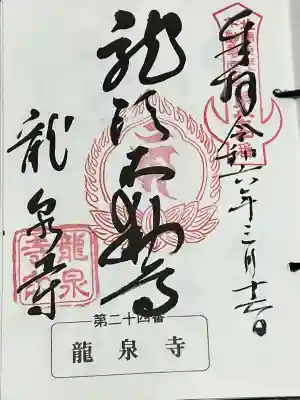 奉拝 令和六年三月十六日
龍頭不動尊
龍泉寺
龍泉寺印
第二十四番
龍泉寺